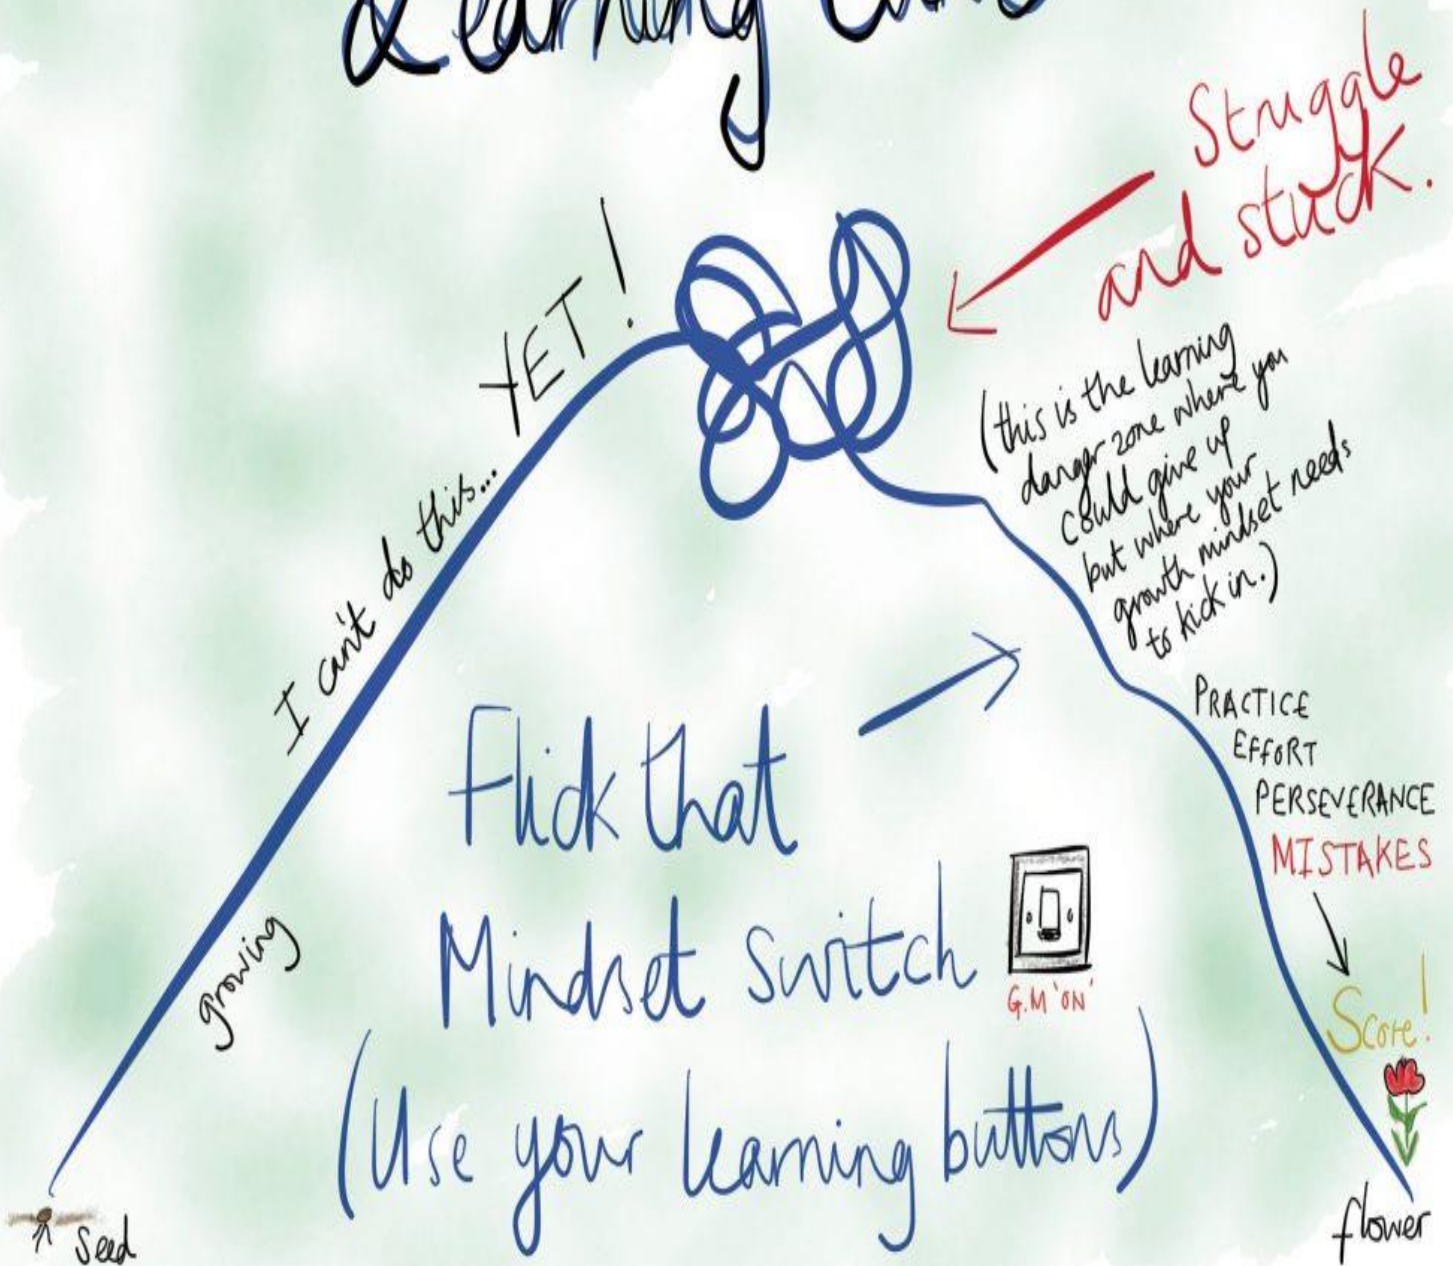 Learning
Struggle
and stuck.
YET!
I can't do this...
growing
seed
(this is the learning
danger zone where you
could give up
but where your
growth mindset needs
to kick in.)
Flick that
Mindset Switch
G.M 'ON'
(Use your learning buttons)
PRACTICE
EFFORT
PERSEVERANCE
MISTAKES
Score!
flower